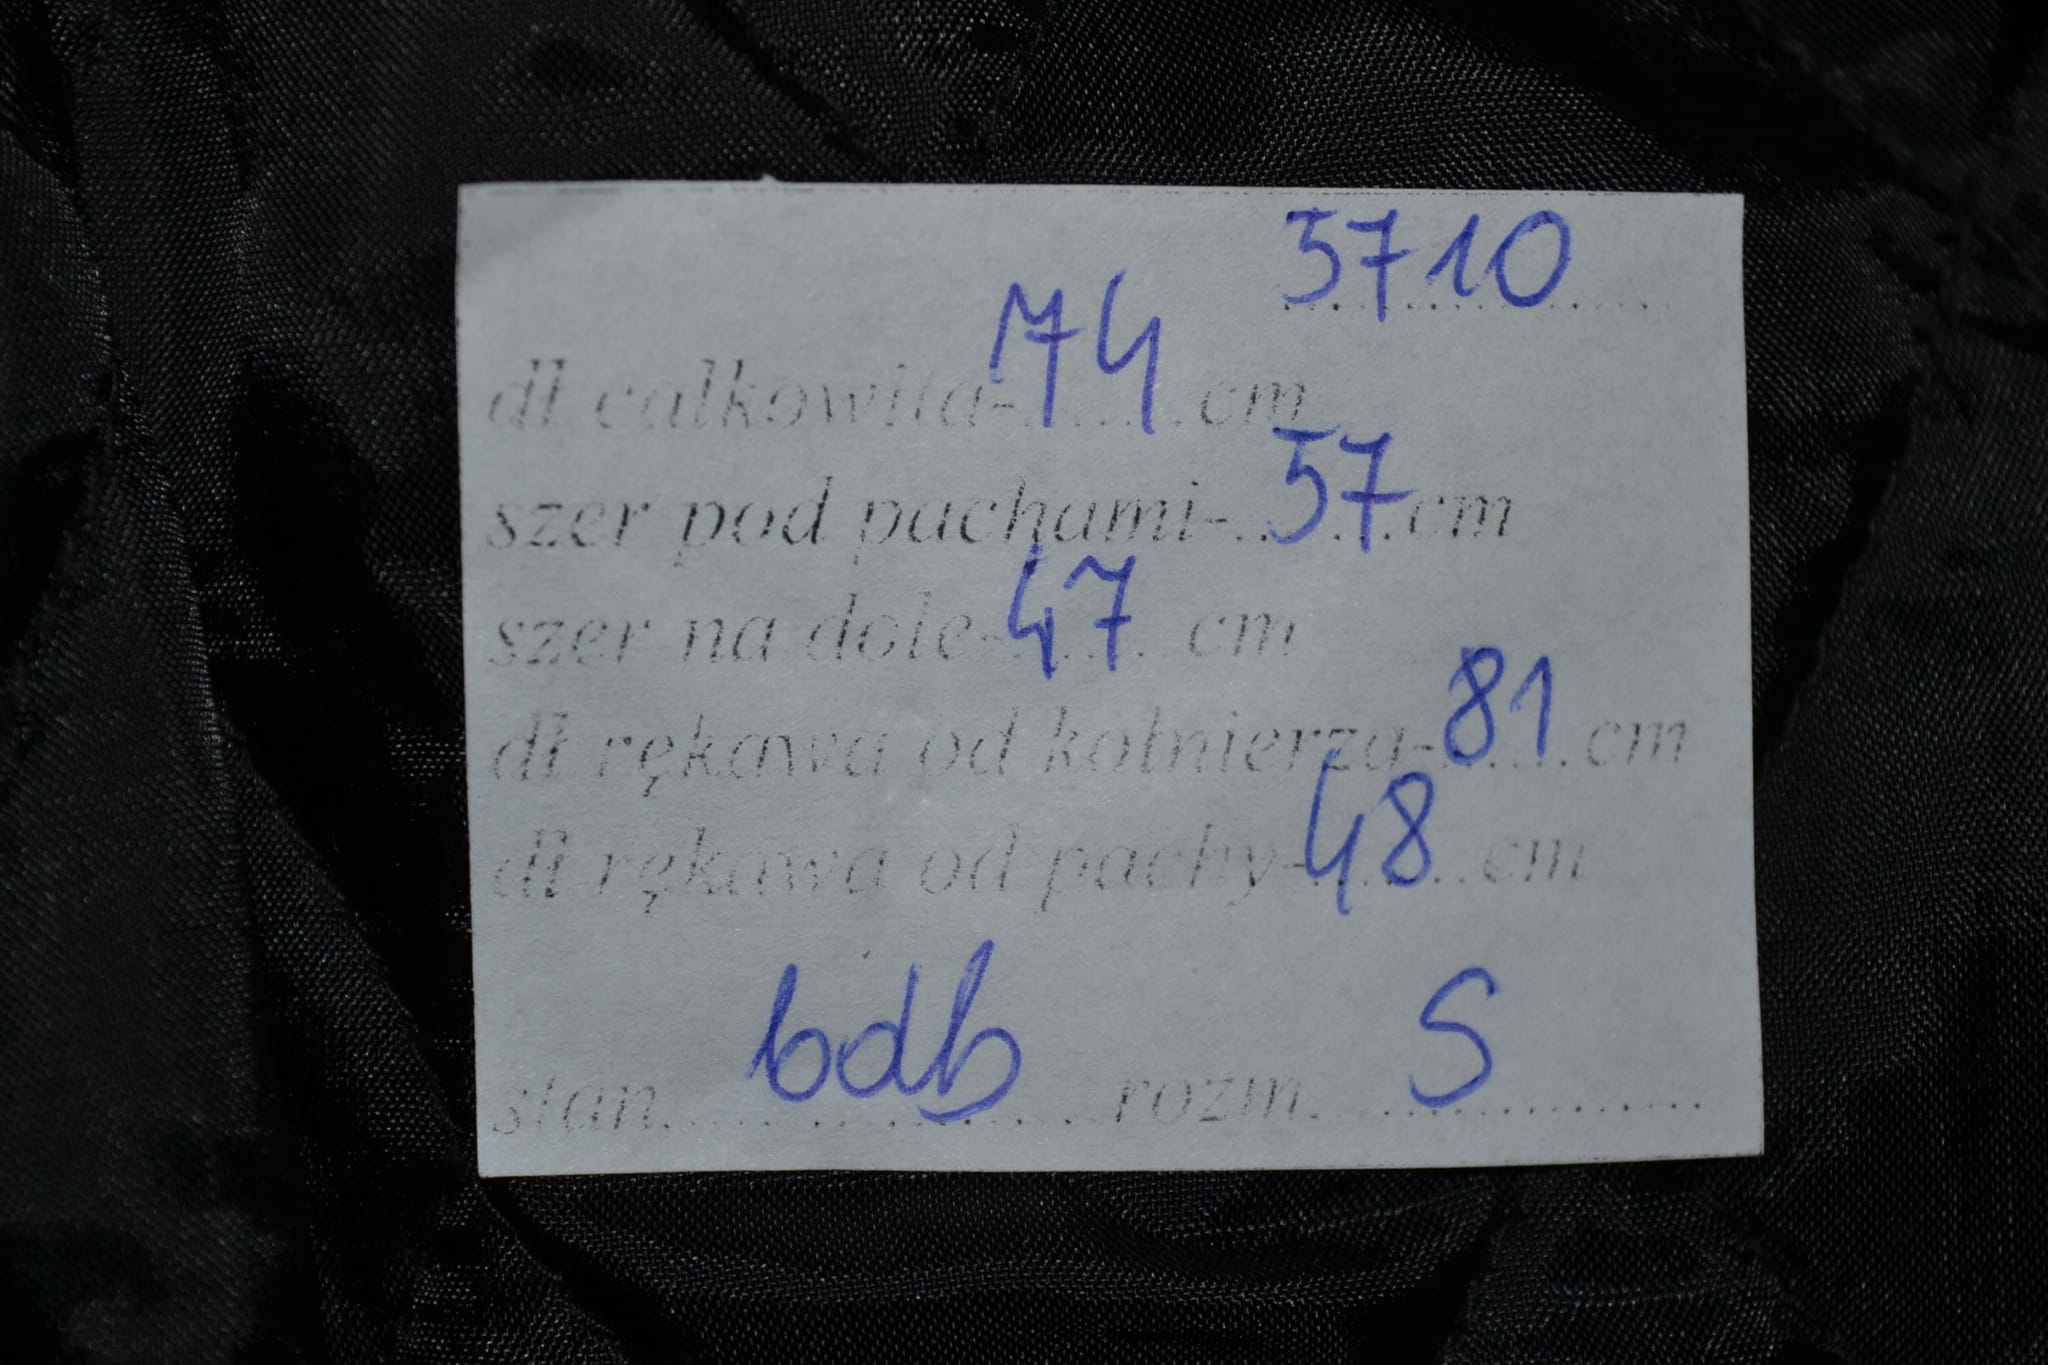 5710
dł całkowita-74cm
szer pod pachami-57cm
szer na dole-47cm
dł rękawa od kołnierza-81cm
dł rękawa od pachy-48cm
stan bdb rozm. S